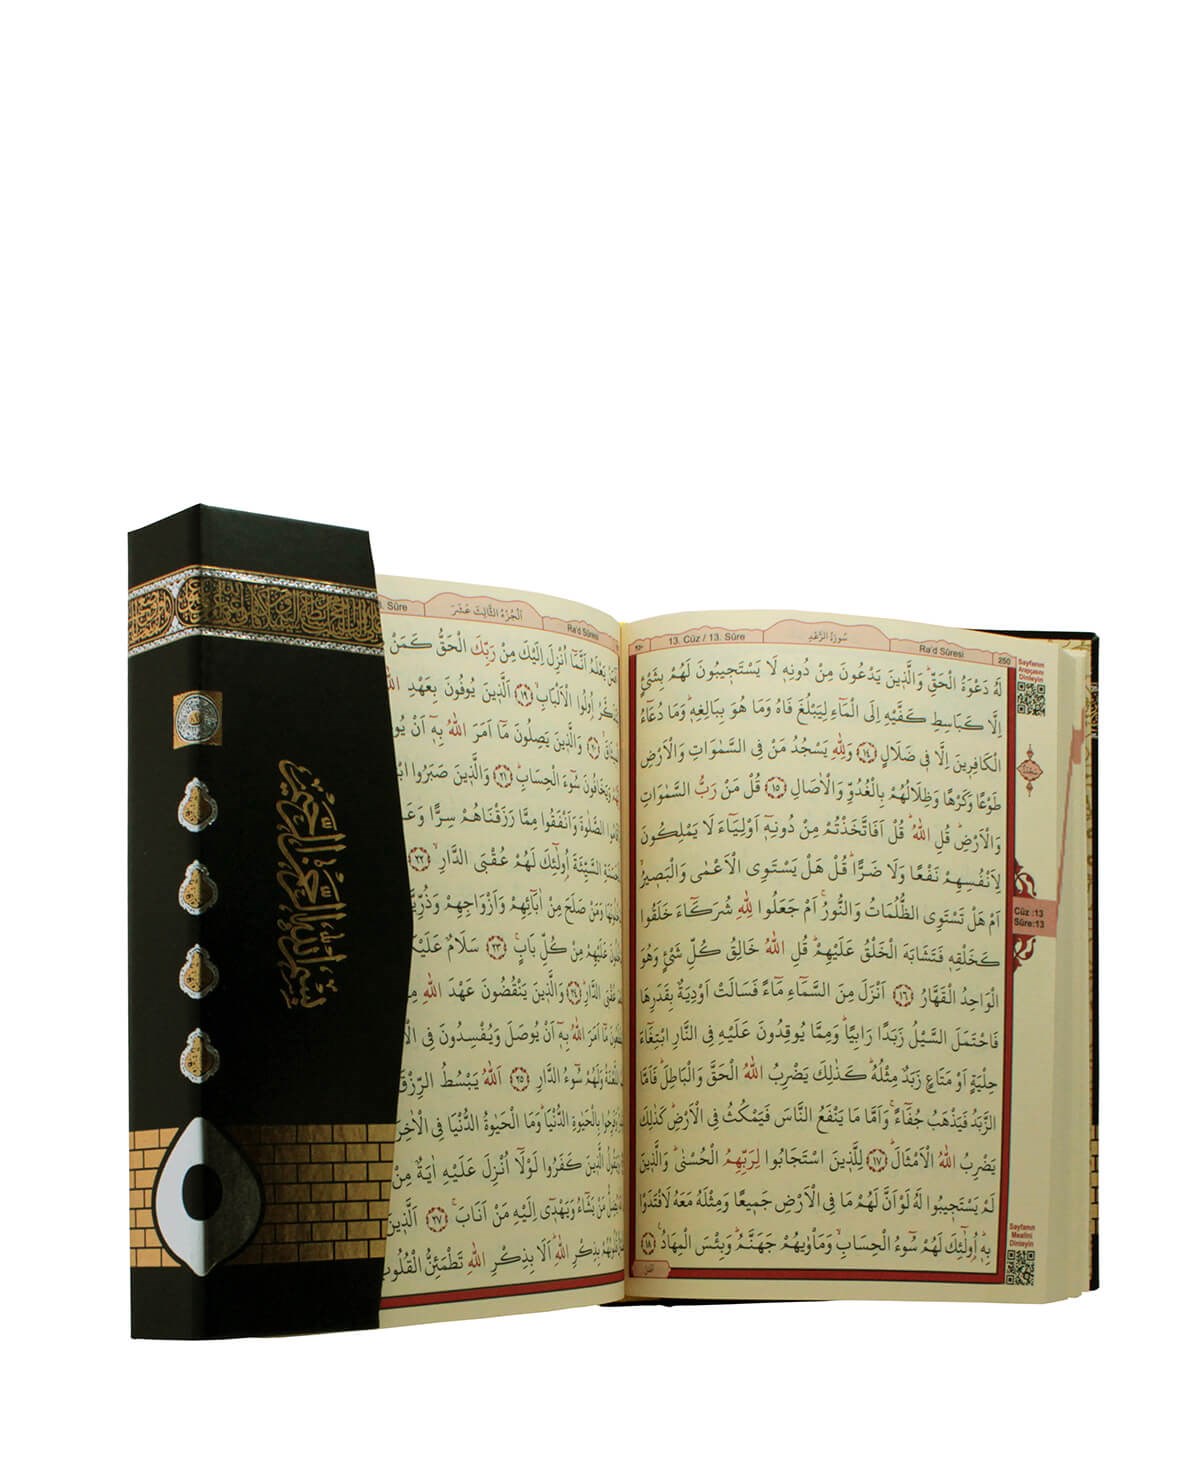 13. Cüz / 13. Sûre
سُورَةُ الرَّعْدِ
Ra'd Sûresi
250
لَهُ دَعْوَةُ الْحَقِّۜ وَالَّذ۪ينَ يَدْعُونَ مِنْ دُونِه۪ لَا يَسْتَج۪يبُونَ لَهُمْ بِشَيْءٍ
اِلَّا كَبَاسِطِ كَفَّيْهِ اِلَى الْمَٓاءِ لِيَبْلُغَ فَاهُ وَمَا هُوَ بِبَالِغِه۪ۜ وَمَا دُعَٓاءُ
الْكَافِر۪ينَ اِلَّا ف۪ي ضَلَالٍ ﴿١٤﴾ وَلِلّٰهِ يَسْجُدُ مَنْ فِي السَّمٰوَاتِ وَالْاَرْضِ
طَوْعًا وَكَرْهًا وَظِلَالُهُمْ بِالْغُدُوِّ وَالْاٰصَالِ ﴿١٥﴾ قُلْ مَنْ رَبُّ السَّمٰوَاتِ
وَالْاَرْضِۜ قُلِ اللّٰهُۜ قُلْ اَفَاتَّخَذْتُمْ مِنْ دُونِه۪ٓ اَوْلِيَٓاءَ لَا يَمْلِكُونَ
لِاَنْفُسِهِمْ نَفْعًا وَلَا ضَرًّاۜ قُلْ هَلْ يَسْتَوِي الْاَعْمٰى وَالْبَص۪يرُ
اَمْ هَلْ تَسْتَوِي الظُّلُمَاتُ وَالنُّورُۚ اَمْ جَعَلُوا لِلّٰهِ شُرَكَٓاءَ خَلَقُوا
كَخَلْقِه۪ فَتَشَابَهَ الْخَلْقُ عَلَيْهِمْۜ قُلِ اللّٰهُ خَالِقُ كُلِّ شَيْءٍ وَهُوَ
الْوَاحِدُ الْقَهَّارُ ﴿١٦﴾ اَنْزَلَ مِنَ السَّمَٓاءِ مَٓاءً فَسَالَتْ اَوْدِيَةٌ بِقَدَرِهَا
فَاحْتَمَلَ السَّيْلُ زَبَدًا رَابِيًاۜ وَمِمَّا يُوقِدُونَ عَلَيْهِ فِي النَّارِ ابْتِغَٓاءَ
حِلْيَةٍ اَوْ مَتَاعٍ زَبَدٌ مِثْلُهُۜ كَذٰلِكَ يَضْرِبُ اللّٰهُ الْحَقَّ وَالْبَاطِلَۜ فَاَمَّا
الزَّبَدُ فَيَذْهَبُ جُفَٓاءًۚ وَاَمَّا مَا يَنْفَعُ النَّاسَ فَيَمْكُثُ فِي الْاَرْضِۜ كَذٰلِكَ
يَضْرِبُ اللّٰهُ الْاَمْثَالَۜ ﴿١٧﴾ لِلَّذ۪ينَ اسْتَجَابُوا لِرَبِّهِمُ الْحُسْنٰىۜ وَالَّذ۪ينَ
لَمْ يَسْتَج۪يبُوا لَهُ لَوْ اَنَّ لَهُمْ مَا فِي الْاَرْضِ جَم۪يعًا وَمِثْلَهُ مَعَهُ لَافْتَدَوْا
بِه۪ۜ اُو۬لٰٓئِكَ لَهُمْ سُٓوءُ الْحِسَابِ وَمَأْوٰيهُمْ جَهَنَّمُۜ وَبِئْسَ الْمِهَادُ۟ ﴿١٨﴾
Sayfanın
Arapçasını
Dinleyin
Cüz :13
Sûre:13
Sayfanın
Mealini
Dinleyin
Sûre
اَلْجُزْءُ الثَّالِثَ عَشَرَ
Ra'd Sûresi
يَعْلَمُ اَنَّمَٓا اُنْزِلَ اِلَيْكَ مِنْ رَبِّكَ الْحَقُّ كَمَنْ
اُو۬لُوا الْاَلْبَابِۙ ﴿١٩﴾ اَلَّذ۪ينَ يُوفُونَ بِعَهْدِ
وَالَّذ۪ينَ يَصِلُونَ مَٓا اَمَرَ اللّٰهُ بِه۪ٓ اَنْ
وَيَخَافُونَ سُٓوءَ الْحِسَابِۜ ﴿٢١﴾ وَالَّذ۪ينَ صَبَرُوا
الصَّلٰوةَ وَاَنْفَقُوا مِمَّا رَزَقْنَاهُمْ سِرًّا
السَّيِّئَةَ اُو۬لٰٓئِكَ لَهُمْ عُقْبَى الدَّارِۙ ﴿٢٢﴾
وَمَنْ صَلَحَ مِنْ اٰبَٓائِهِمْ وَاَزْوَاجِهِمْ
عَلَيْهِمْ مِنْ كُلِّ بَابٍۚ ﴿٢٣﴾ سَلَامٌ
عُقْبَى الدَّارِۜ ﴿٢٤﴾ وَالَّذ۪ينَ يَنْقُضُونَ عَهْدَ اللّٰهِ
مَٓا اَمَرَ اللّٰهُ بِه۪ٓ اَنْ يُوصَلَ وَيُفْسِدُونَ فِي
اللَّعْنَةُ وَلَهُمْ سُٓوءُ الدَّارِ ﴿٢٥﴾ اَللّٰهُ يَبْسُطُ الرِّزْقَ
بِالْحَيٰوةِ الدُّنْيَاۜ وَمَا الْحَيٰوةُ الدُّنْيَا فِي
الَّذ۪ينَ كَفَرُوا لَوْلَٓا اُنْزِلَ عَلَيْهِ اٰيَةٌ مِنْ
مَنْ يَشَٓاءُ وَيَهْد۪ٓي اِلَيْهِ مَنْ اَنَابَۚ ﴿٢٧﴾ اَلَّذ۪ينَ
بِذِكْرِ اللّٰهِۜ اَلَا بِذِكْرِ اللّٰهِ تَطْمَئِنُّ الْقُلُوبُ
بسم الله الرحمن الرحيم